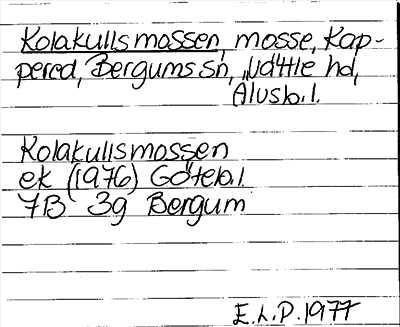 Kolakullsmossen, mosse, Kap-
pered, Bergums sn, Vättle hd,
Älvsb.l.
Kolakullsmossen
ek (1976) Göteb.l.
7B 3g Bergum
E.L.P. 1977